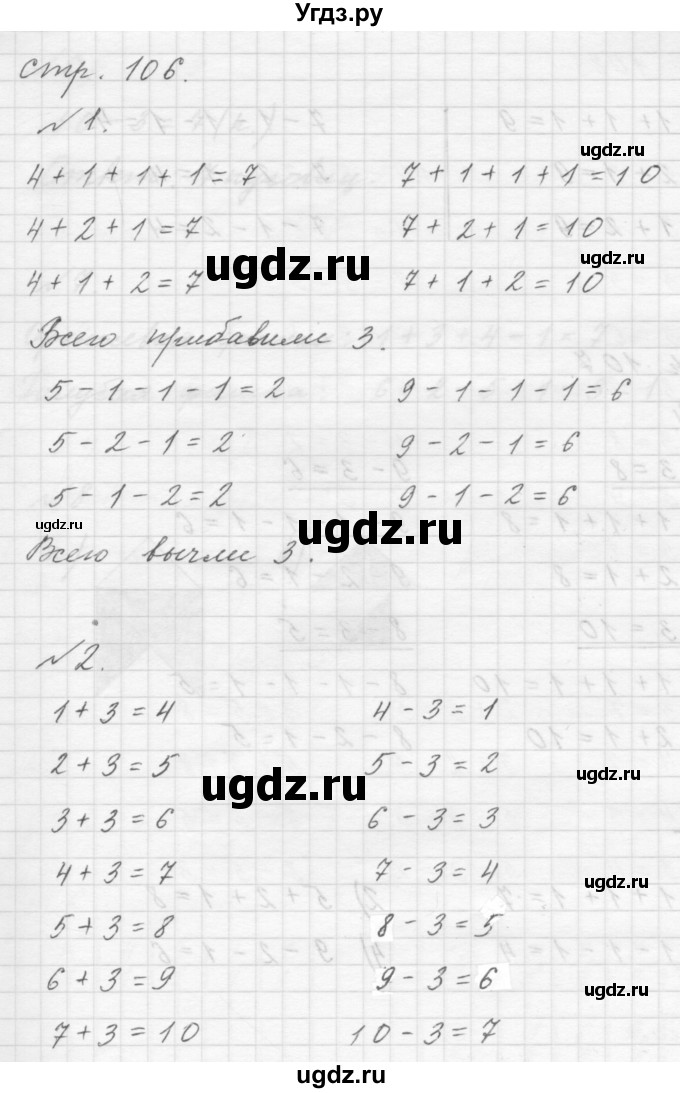 Угдз.ру
стр. 106.
№1.
ugdz.ru
4+1+1+1=7 7+1+1+1=10
4+2+1=7 7+2+1=10
ugdz.ru
4+1+2=7 7+1+2=10
Всего прибавили 3.
5-1-1-1=2 9-1-1-1=6
5-2-1=2 9-2-1=6
5-1-2=2 9-1-2=6
ugdz.ru ugdz.ru
Всего вычли 3.
№2.
1+3=4 4-3=1
2+3=5 5-3=2
ugdz.ru ugdz.ru
3+3=6 6-3=3
4+3=7 7-3=4
ugdz.ru
5+3=8 8-3=5
6+3=9 9-3=6
ugdz.ru
7+3=10 10-3=7
ugdz.ru